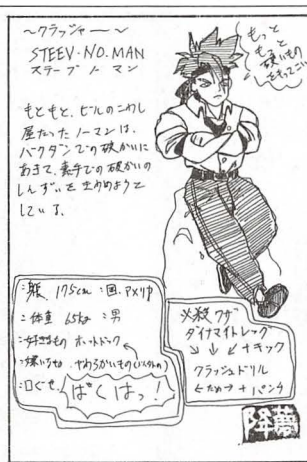 〜クラッシャー〜
STEEV・NO・MAN
ステーブ ノーマン
もともと、ビルのこわし
屋だったノーマンは、
バクダンでの破かいに
あきて、素手での破かいの
しんずいを きわめようと
している。
もっと
もっと
硬いもの
をもってこい
:身長 175cm :国 アメリカ
:体重 65kg :男
:好きなもの ホットドック
:嫌いなもの やわらかいもの(以外の)
:口ぐせ ばくはっ!
必殺ワザ
ダイナマイトレック
↓ ↓ ↙ +キック
クラッシュドリル
←ため→ +パンチ
降夢